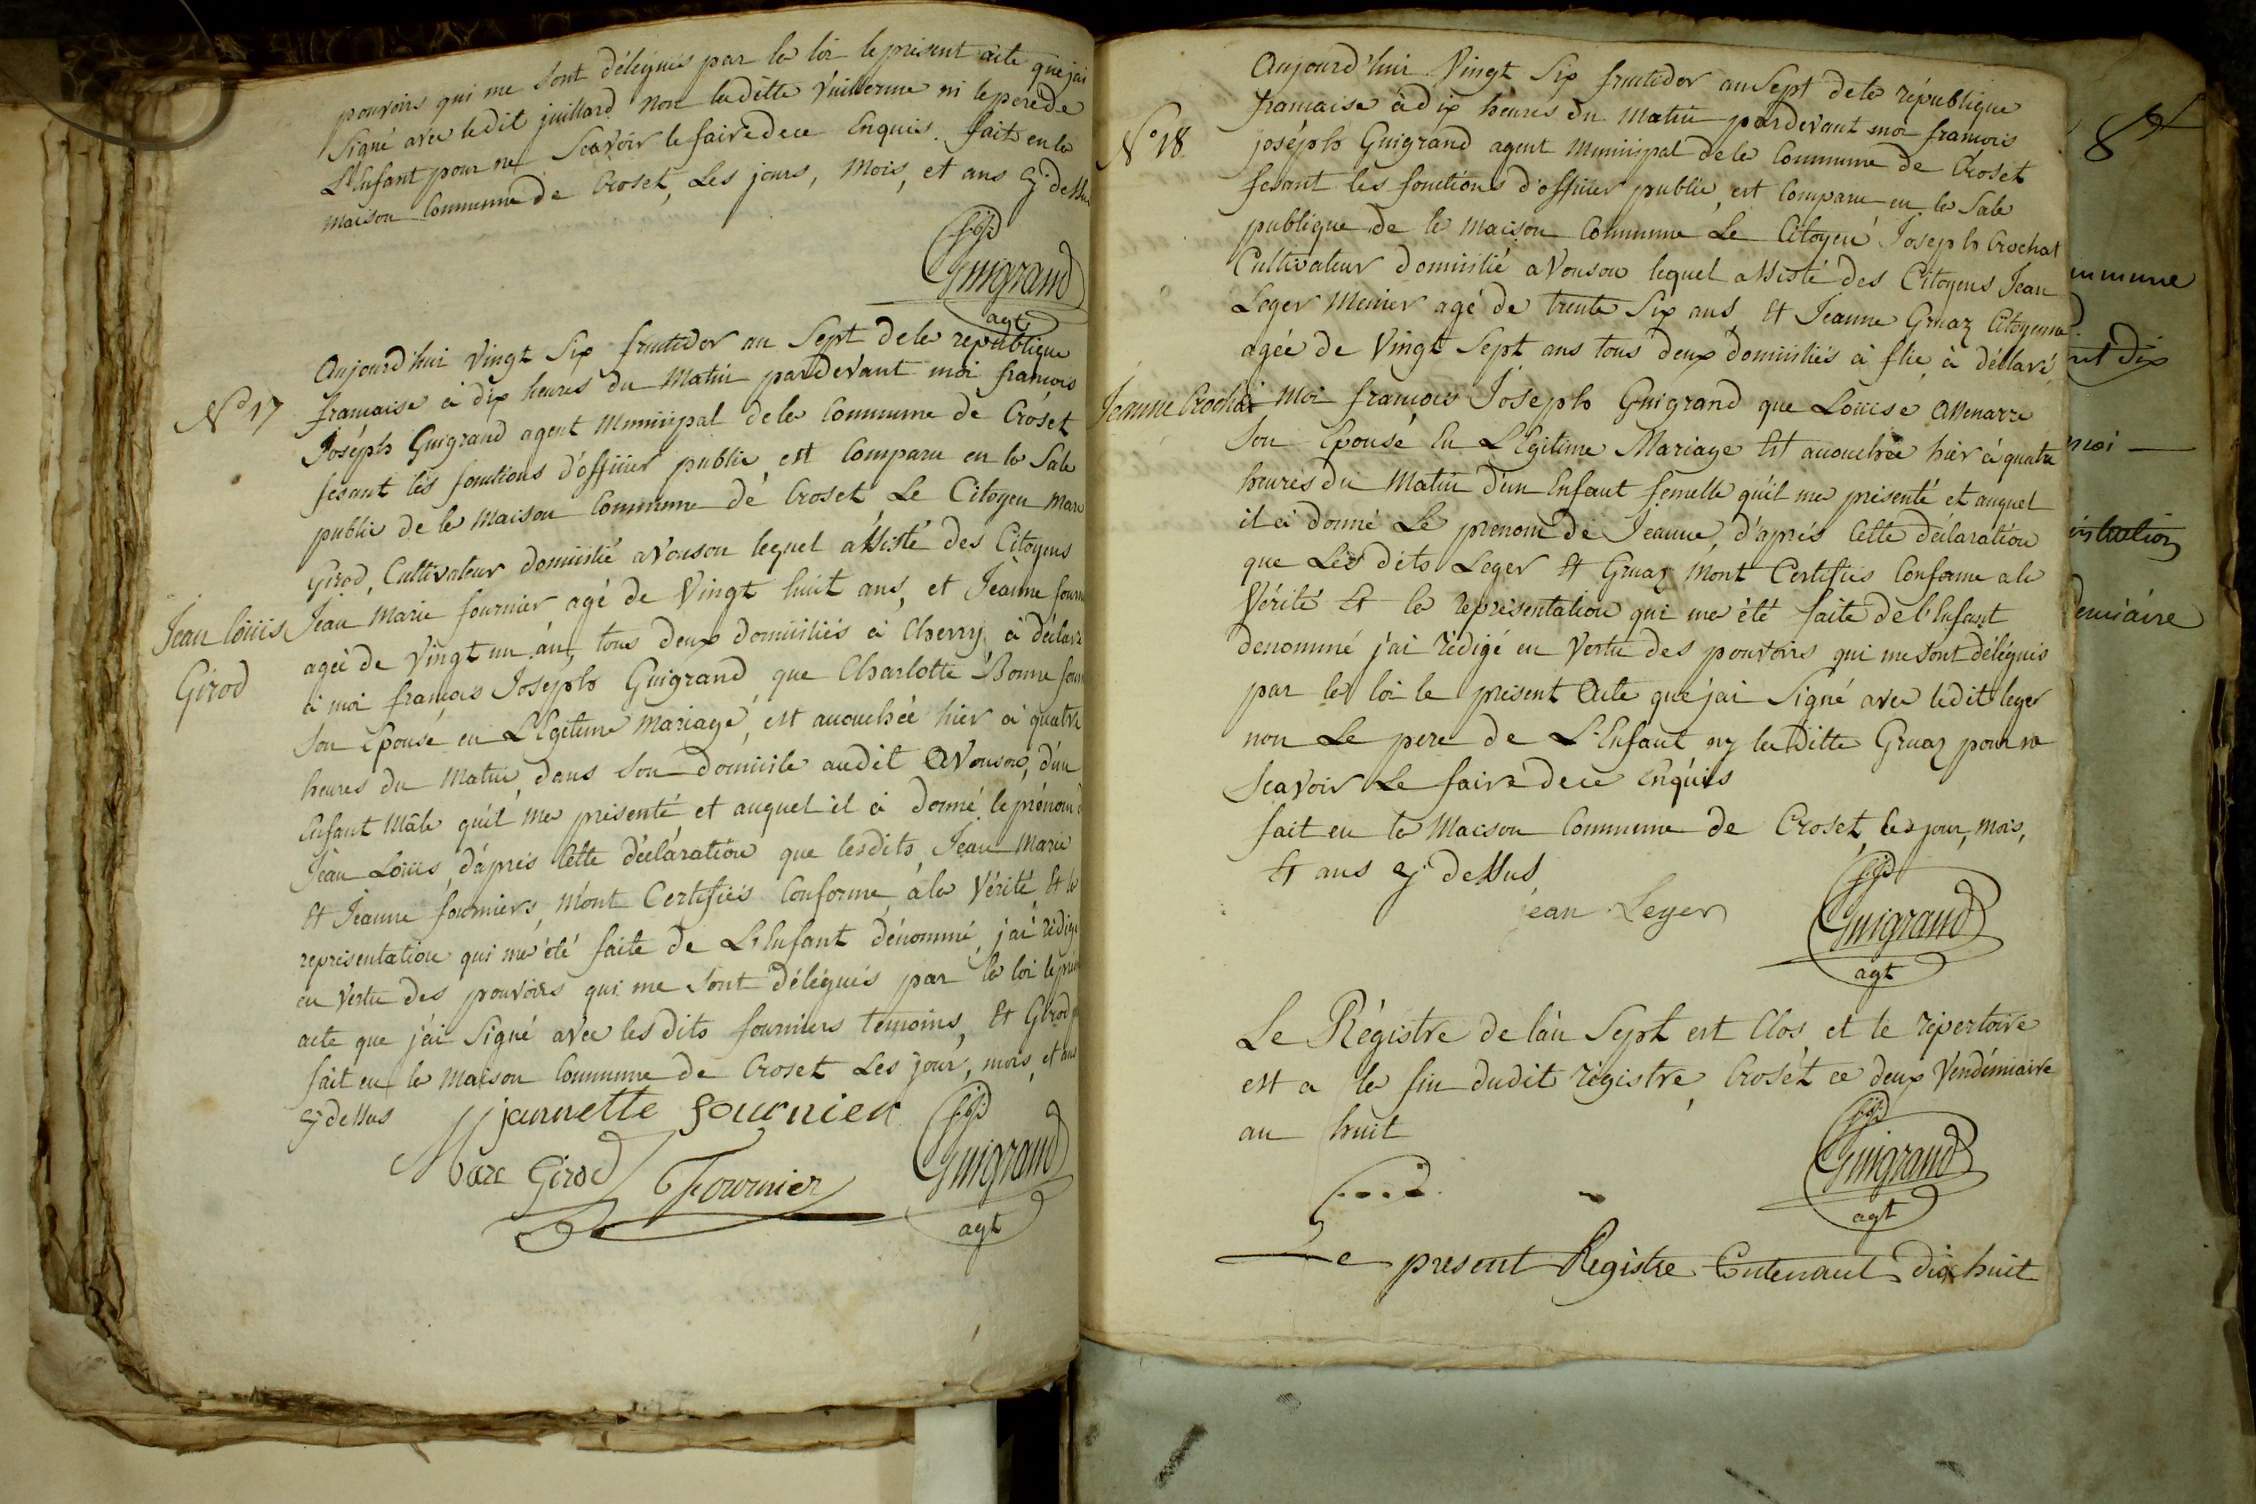 pouvoirs qui me sont délégués par la loi le présent acte que jai
Signé avec ledit juillard non laditte Vuillerme ni le pere de
L'Enfant pour ne Scavoir le faire de ce Enquis. fait en la
maison Commune de Croset, Les jours, Mois, et ans Cy dessu
fjs
Guigrand
agt
N° 17
Jean louis
Girod
Aujourd'hui Vingt Six fructidor an Sept de la république
francaise à dix heures du Matin pardevant moi francois
Joséph Guigrand agent Municipal de la Commune de Croset
fesant les fonctions d'officier public est Comparu en la Sale
public de la Maison Commune de Croset, Le Citoyen Marc
Girod, Cultivateur domicilié avouson lequel assisté des Citoyens
Jean Marie fournier agé de Vingt huit ans, et Jeanne fourn
agée de Vingt un an, tous deux domiciliés à Chevry, à déclaré
à moi francois Joseph Guigrand, que Charlotte Bonne four
Son Epouse en L'Egitime mariage, est accouchée hier à quatre
heures du Matin, dans Son domicile audit Avouson, d'un
Enfant Mâle qu'il ma présenté et auquel il à donné le prénom d
Jean Louis, d'après Cette déclaration que lesdits Jean Marie
Et Jeanne fourniers, M'ont Certifiés Conforme à la Vérité, Et la
représentation qui m'a été faite de L'Enfant dénommé, j'ai rédigé
en Vertu des pouvoirs qui me Sont délégués par la loi le prés
acte que j'ai Signé avec les dits fourniers temoins, Et Girod p
fait en la Maison Commune de Croset Les jour, mois, et ans
Cy dessus
jannette fournier
Marc Girod
Fournier
fjs
Guigrand
agt
8
N° 18
Jeanne Crochat
Aujourd'hui Vingt Six fructidor an Sept de la république
francaise à dix heures du Matin pardevant moi francois
joséph Guigrand agent Municipal de la Commune de Croset
fesant les fonctions d'officier public, est Comparu en la Sale
publique de la Maison Commune Le Citoyen Joseph Crochat
Cultivateur domicilié avouson lequel assisté des Citoyens Jean
Leger Menier agé de trente Six ans Et Jeanne Gruaz Citoyenne
agée de Vingt Sept ans tous deux domiciliés à flie, à déclaré,
à Moi francois Joseph Guigrand que Louise
Son Epouse En L'Egitime Mariage Est accouchée hier à quatre
heures du Matin d'un Enfant femelle qu'il ma présenté et auquel
il à donné Le prenom de Jeanne, d'aprés Cette déclaration
que Les dits Leger Et Gruaz Mont Certifiés Conforme a la
Vérité Et la représentation qui ma été faite de l'Enfant
denommé j'ai rédigé en Vertu des pouvoirs qui me sont délégués
par la loi le présent Acte que j'ai Signé avec ledit leger
non Le pere de L'Enfant ny laditte Gruaz pour ne
Scavoir Le faire de ce Enquis
fait en la Maison Commune de Croset, les jour, mois,
Et ans Cy dessus
jean Leger
fjs
Guigrand
agt
Le Régistre de l'an Sept est Clos, et le répertoire
est a la fin dudit régistre, Croset ce deux Vendémiaire
an huit
fjs
Guigrand
agt
Le présent Registre Contenant dix huit
mmune
nt dix
moi
demiaire